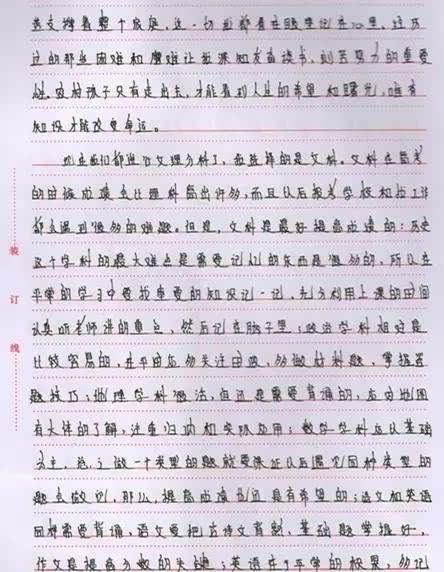 苦支撑着整个家庭,这一切我都看在眼里记在心里。经历
过的那些困难和磨难让我深知发奋读书,刻苦努力的重要
性。农村孩子只有走出去,才能看到人生的希望和曙光,唯有
知识才能改变命运。
现在我们都进行文理分科了,我选择的是文科。文科在高考
的时候成绩会比理科高出许多,而且以后报考学校和找工作
都会遇到很多的难题。但是,文科是最好提高成绩的:历史
这个学科的最大难点是需要记忆的东西是很多的,所以在
平常的学习中要找重要的知识记一记,充分利用上课的时间
认真听老师讲的重点,然后记在脑子里;政治学科相对是
比较容易的,在平时应多关注时政,多做好科题,掌握答
题技巧;地理学科做法,但还是需要背诵的,应对地图
有大体的了解,注重归纳和实际应用;数学学科应从基础
为主,总之做一个类型的题就要保证以后遇见同种类型的
题会做,那么,提高成绩也还是有希望的;语文和英语
同样需要背诵,语文要把古诗文背熟,基础题掌握好,
作文是提高分数的关键;英语在于平常的积累,多记
装
订
线